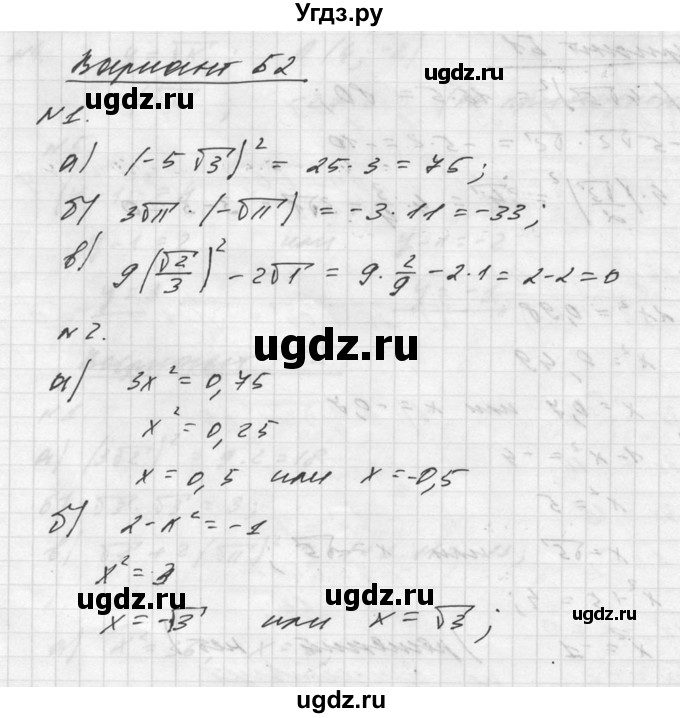 Угдз.ру
Вариант Б2
ugdz.ru ugdz.ru
№1.
а) (-5√3)² = 25·3 = 75;
б) 3√11·(-√11) = -3·11 = -33;
в) 9(√2/3)² - 2√1 = 9·2/9 - 2·1 = 2-2 = 0
№2.
ugdz.ru
а) 3x² = 0,75
x² = 0,25
x = 0,5 или x = -0,5
б) 2-x² = -1
x² = 3
ugdz.ru ugdz.ru ugdz.ru
x = -√3 или x = √3;
ugdz.ru